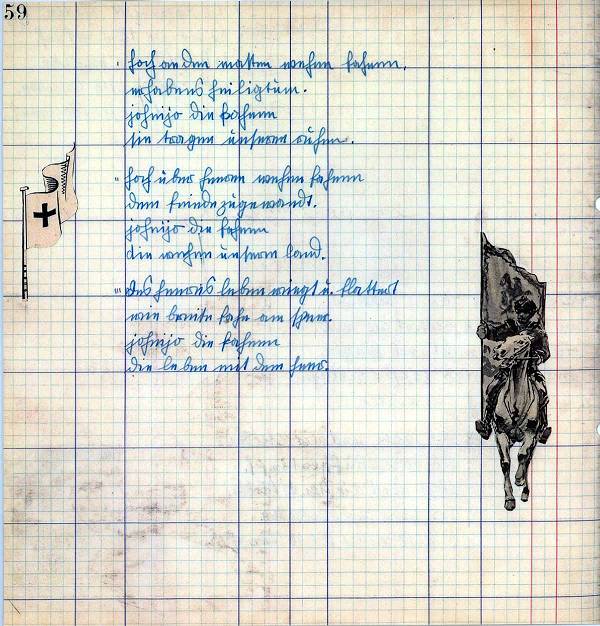 59
' hoch an den masten wehen fahnen,
erhabens heiligtum.
joheijo die fahnen
sie tragen unseren ruhm.
" hoch über heeren wehen fahnen
dem feinde zugewandt.
joheijo die fahnen
die wehen unserm land.
''' des heeres leben wiegt u. flattert
wie breite fahn am speer.
joheijo die fahnen
die leben mit dem heer.